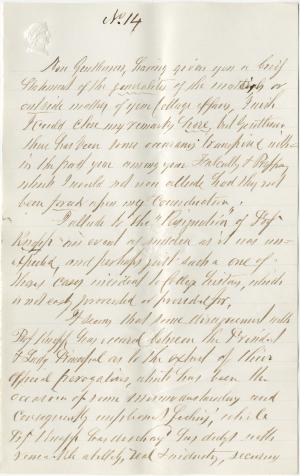 No 14
Now Gentlemen, having given you a brief
statement of the generalities of the
outside matters of your College affairs, I wish
I could close my remarks here, but Gentlemen
there has been some occurrences transpired with-
in the past year among your Faculty &
which I would not now allude had they not
been forced upon my consideration.
I allude to the "Resignation" of Prof
Knapp an event as sudden as it was un-
expected, and perhaps just such a one of
those cases incident to College history, which
is not easily prevented or provided for,
It seems that some disagreement with
Prof Knapp has occurred between the President
& as to the extent of their
official prerogatives, which has been the
occasion of some misunderstanding and
consequently unpleasant feeling, while
Prof Knapp has discharged his duty with
remarkable ability, zeal & industry, securing